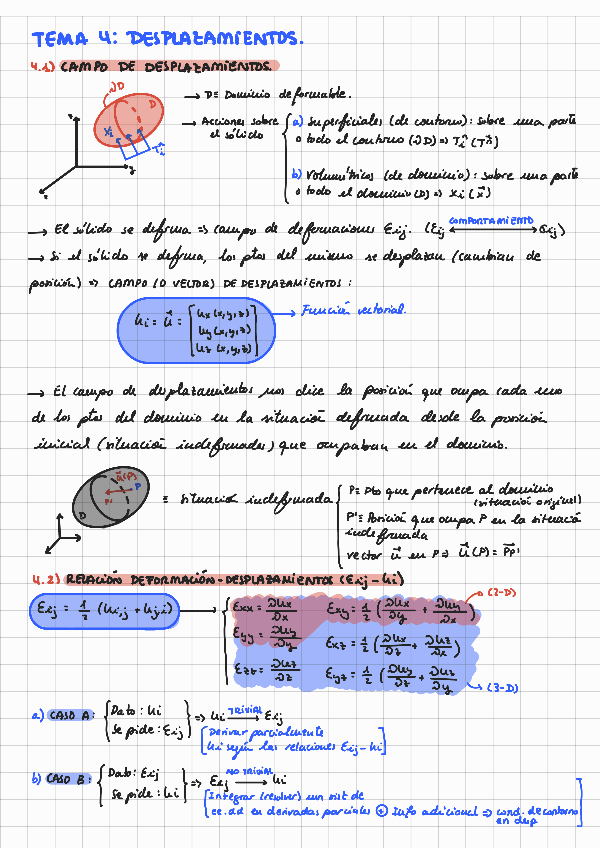 TEMA 4: DESPLAZAMIENTOS.
4.1) CAMPO DE DESPLAZAMIENTOS.
∂D
D
z
Xi
Ti^n
y
x
→ D ≡ Dominio deformable.
→ Acciones sobre el sólido
a) Superficiales (de contorno): sobre una parte
o todo el contorno (∂D) ⇒ Ti^n (T^n)
b) Volumétricas (de dominio): sobre una parte
o todo el dominio (D) ⇒ Xi (x⃗)
→ El sólido se deforma ⇒ campo de deformaciones Eij. (Eij ←COMPORTAMIENTO→ σij)
→ Si el sólido se deforma, los ptos del mismo se desplazan (cambian de
posición) ⇒ CAMPO (O VECTOR) DE DESPLAZAMIENTOS:
ui = u⃗ = [ux (x,y,z)
uy (x,y,z)
uz (x,y,z)]
→ Función vectorial.
→ El campo de desplazamientos nos dice la posición que ocupa cada uno
de los ptos del dominio en la situación deformada desde la posición
inicial (situación indeformada) que ocupaban en el dominio.
u⃗(P)
P
P'
D
≡ situación indeformada
P ≡ Pto que pertenece al dominio
(situación original)
P' ≡ Posición que ocupa P en la situació
indeformada
vector u⃗ en P ⇒ u⃗(P) = PP'
4.2) RELACIÓN DEFORMACIÓN-DESPLAZAMIENTOS (Eij - ui)
Eij = 1/2 (ui,j + uj,i) →
Exx = ∂ux/∂x Exy = 1/2 (∂ux/∂y + ∂uy/∂x)
→ (2-D)
Eyy = ∂uy/∂y Exz = 1/2 (∂ux/∂z + ∂uz/∂x)
Ezz = ∂uz/∂z Eyz = 1/2 (∂uy/∂z + ∂uz/∂y)
→ (3-D)
a) CASO A: {Dato: ui
Se pide: Eij} ⇒ ui —TRIVIAL→ Eij
[Derivar parcialmente
ui según las relaciones Eij - ui]
b) CASO B: {Dato: Eij
Se pide: ui} ⇒ Eij —NO TRIVIAL→ ui
[Integrar (resolver) un sist de
ec.dd en derivadas parciales ⊕ Info adicional ⇒ cond. de contorno
en desp]